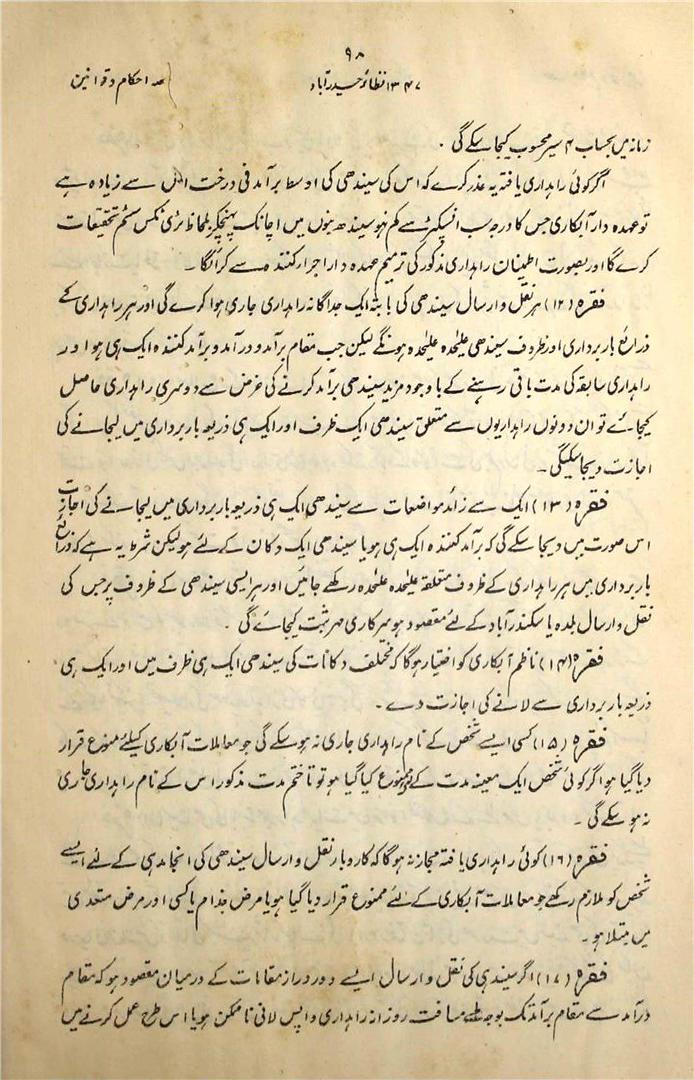 ۹۸
۱۳۴۷ نظائر حیدرآباد
احکام و قوانین
زمانہ میں بحساب ۴ سیر محسوب کیجا سکے گی ۔
اگر کوئی راہداری یافتہ یہ عذر کرے کہ اس کی سیندھی کی اوسط برآمد فی درخت اس سے زیادہ ہے
تو عہدہ دار آبکاری جس کا درجہ سب انسپکٹر سے کم نہو سیندھ بنوں میں اچانک پہنچکر بلحاظ ٹری ٹکس سسٹم تحقیقات
کرے گا اور بصورت اطمینان راہداری مذکور کی ترمیم عہدہ دار اجرار کنندہ سے کرائگا ۔
فقرہ (۱۲) ہر نقل و ارسال سیندھی کی بابتہ ایک جداگانہ راہداری جاری ہوا کرے گی اور ہر راہداری کے
ذرائع باربرداری اور ظروف سیندھی علیٰحدہ علیٰحدہ ہونگے لیکن جب مقام برآمد و درآمد و برآمد کنندہ ایک ہی ہو اور
راہداری سابقہ کی مدت باقی رہنے کے باوجود مزید سیندھی برآمد کرنے کی غرض سے دوسری راہداری حاصل
کیجائے تو ان دونوں راہداریوں سے متعلق سیندھی ایک ظرف اور ایک ہی ذریعہ باربرداری میں لیجانے کی
اجازت دیجا سکیگی ۔
فقرہ (۱۳) ایک سے زائد مواضعات سے سیندھی ایک ہی ذریعہ باربرداری میں لیجانے کی اجازت
اس صورت میں دیجا سکے گی کہ برآمد کنندہ ایک ہی ہو یا سیندھی ایک دکان کے لئے ہو لیکن شرط یہ ہے کہ ذرائع
باربرداری میں ہر راہداری کے ظروف متعلقہ علیٰحدہ علیٰحدہ رکھے جائیں اور ہر ایسی سیندھی کے ظروف پر جس کی
نقل و ارسال بلدہ یا سکندرآباد کے لئے مقصود ہو سرکاری مہر ثبت کیجائے گی ۔
فقرہ (۱۴) ناظم آبکاری کو اختیار ہوگا کہ مختلف دکانات کی سیندھی ایک ہی ظرف میں اور ایک ہی
ذریعہ باربرداری سے لانے کی اجازت دے ۔
فقرہ (۱۵) کسی ایسے شخص کے نام راہداری جاری نہ ہوسکے گی جو معاملات آبکاری کیلئے ممنوع قرار
دیا گیا ہو اگر کوئی شخص ایک معینہ مدت کے لئے ممنوع کیا گیا ہو تو تا ختم مدت مذکور اس کے نام راہداری جاری
نہ ہوسکے گی ۔
فقرہ (۱۶) کوئی راہداری یافتہ مجاز نہ ہوگا کہ کاروبار نقل و ارسال سیندھی کی انجامدہی کے لئے ایسے
شخص کو ملازم رکھے جو معاملات آبکاری کے لئے ممنوع قرار دیا گیا ہو یا مرض جذام یا کسی اور مرض متعدی
میں مبتلا ہو ۔
فقرہ (۱۷) اگر سیندھی کی نقل و ارسال ایسے دور دراز مقامات کے درمیان مقصود ہو کہ مقام
درآمد سے مقام برآمد تک بوجہ طے مسافت روزانہ راہداری واپس لانی ناممکن ہو یا اس طرح عمل کرنے میں